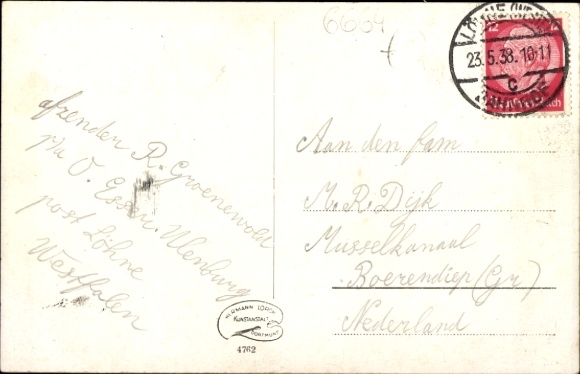 6664
LÖHNE (WESTF)
23.5.38.10-11
c
BAHNHOF
12
afzenden R. Groenewold
p/a O. Esser. Ulenburg
post Löhne
Westfalen
Aan den fam
M. R. Dijk
Musselkanaal
Boerendiep (Gr)
Nederland
HERMANN LORCH
KUNSTANSTALT
DORTMUND
4762